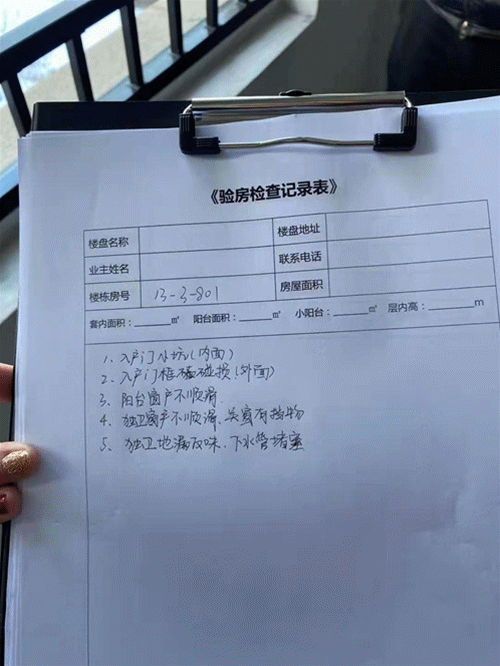 《验房检查记录表》
楼盘名称 楼盘地址
业主姓名 联系电话
楼栋房号 13-3-801 房屋面积
套内面积：______㎡ 阳台面积：______㎡ 小阳台：______㎡ 层内高：______m
1、入户门小坑(内面)
2、入户门框磕碰损(外面)
3、阳台窗户不顺滑.
4、独卫窗户不顺滑、关窗有挡物
5、独卫地漏反味、下水管堵塞